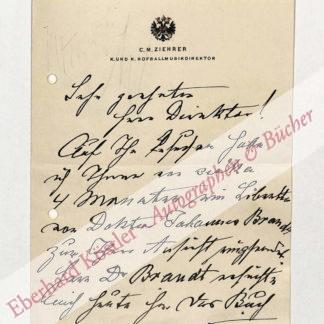 C. M. ZIEHRER
K. UND K. HOFBALLMUSIKDIREKTOR
Sehr geehrter
Herr Direktor!
Auf Ihr Ersuchen hatte
ich Ihnen vor circa
4 Monaten ein Libretto
von Doktor Johannes Brandt
zur Ansicht eingesendet.
Herr Dr Brandt ersuchte
mich heute das Buch
Eberhard Köstler Autographen & Bücher